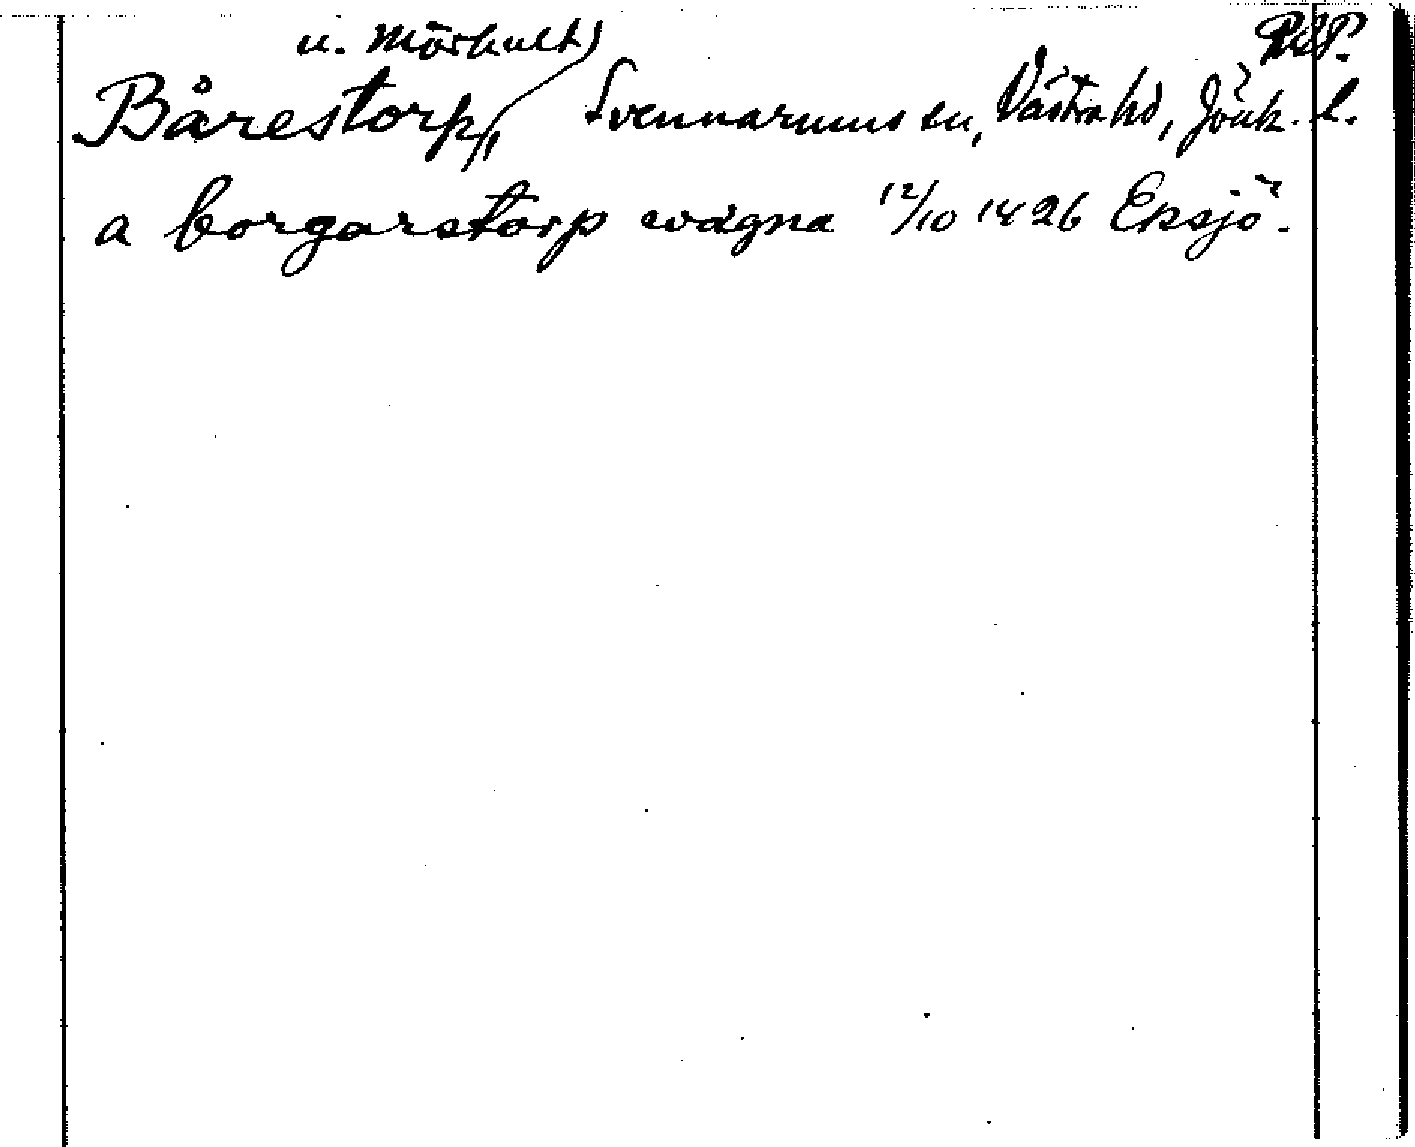 u. Mörhult) P.
Bårestorp, Svennarums sn, Västra hd, Jönk. l.
a borgarstorp wägna 12/10 1426 Eksjö.